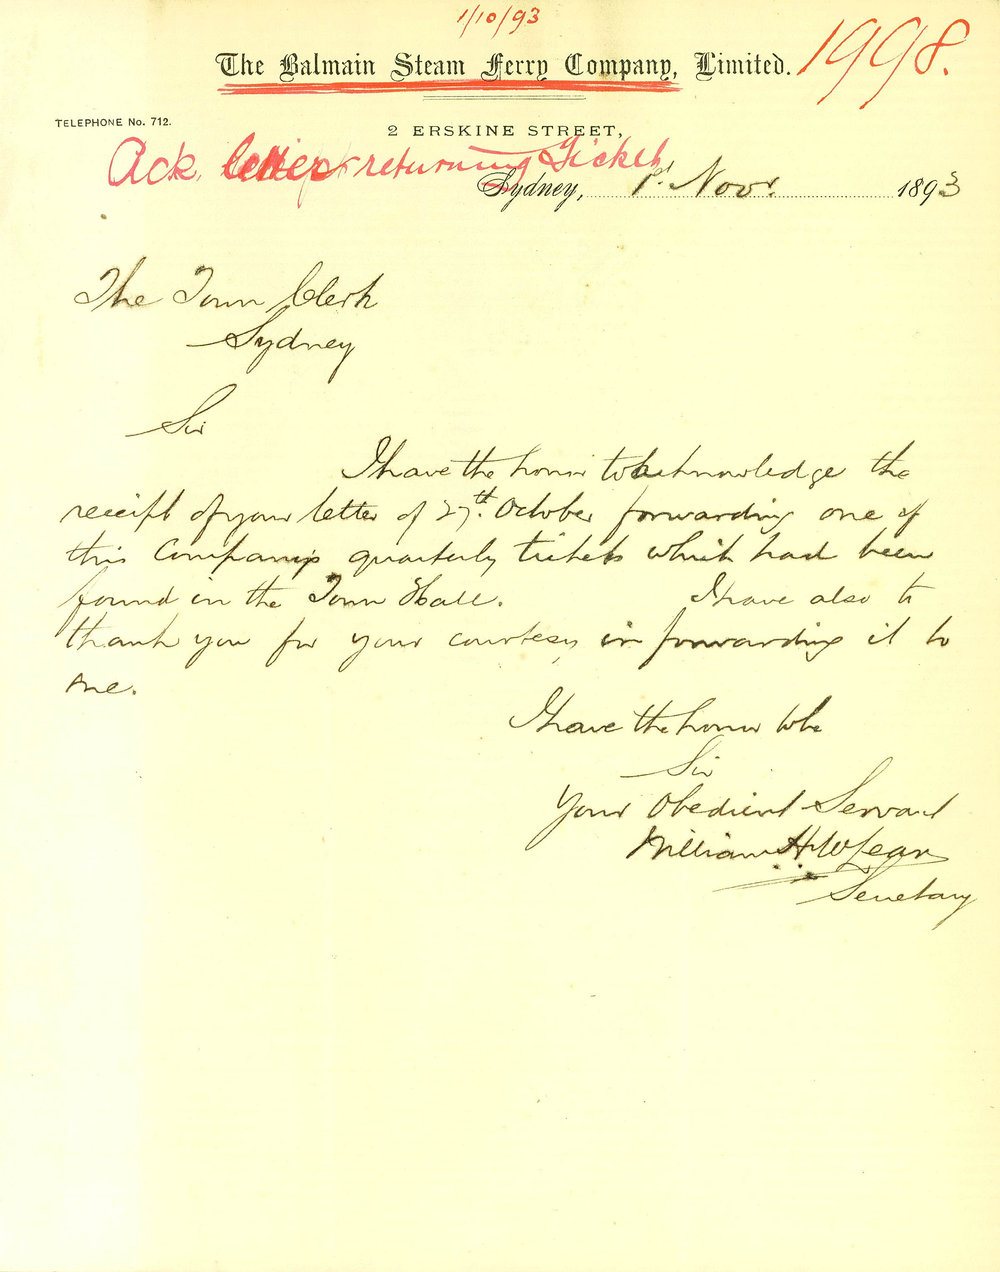 1/10/93
The Balmain Steam Ferry Company, Limited. 1998.
TELEPHONE No. 712.
2 ERSKINE STREET,
Ack. letter returning Ticket
Sydney, 1st Novr. 1893
The Town Clerk
Sydney
Sir
I have the honor to acknowledge the
receipt of your letter of 27th. October forwarding one of
this Company's quarterly tickets which had been
found in the Town Hall. I have also to
thank you for your courtesy in forwarding it to
me.
I have the honor to be
Sir
Your Obedient Servant
William H
Secretary